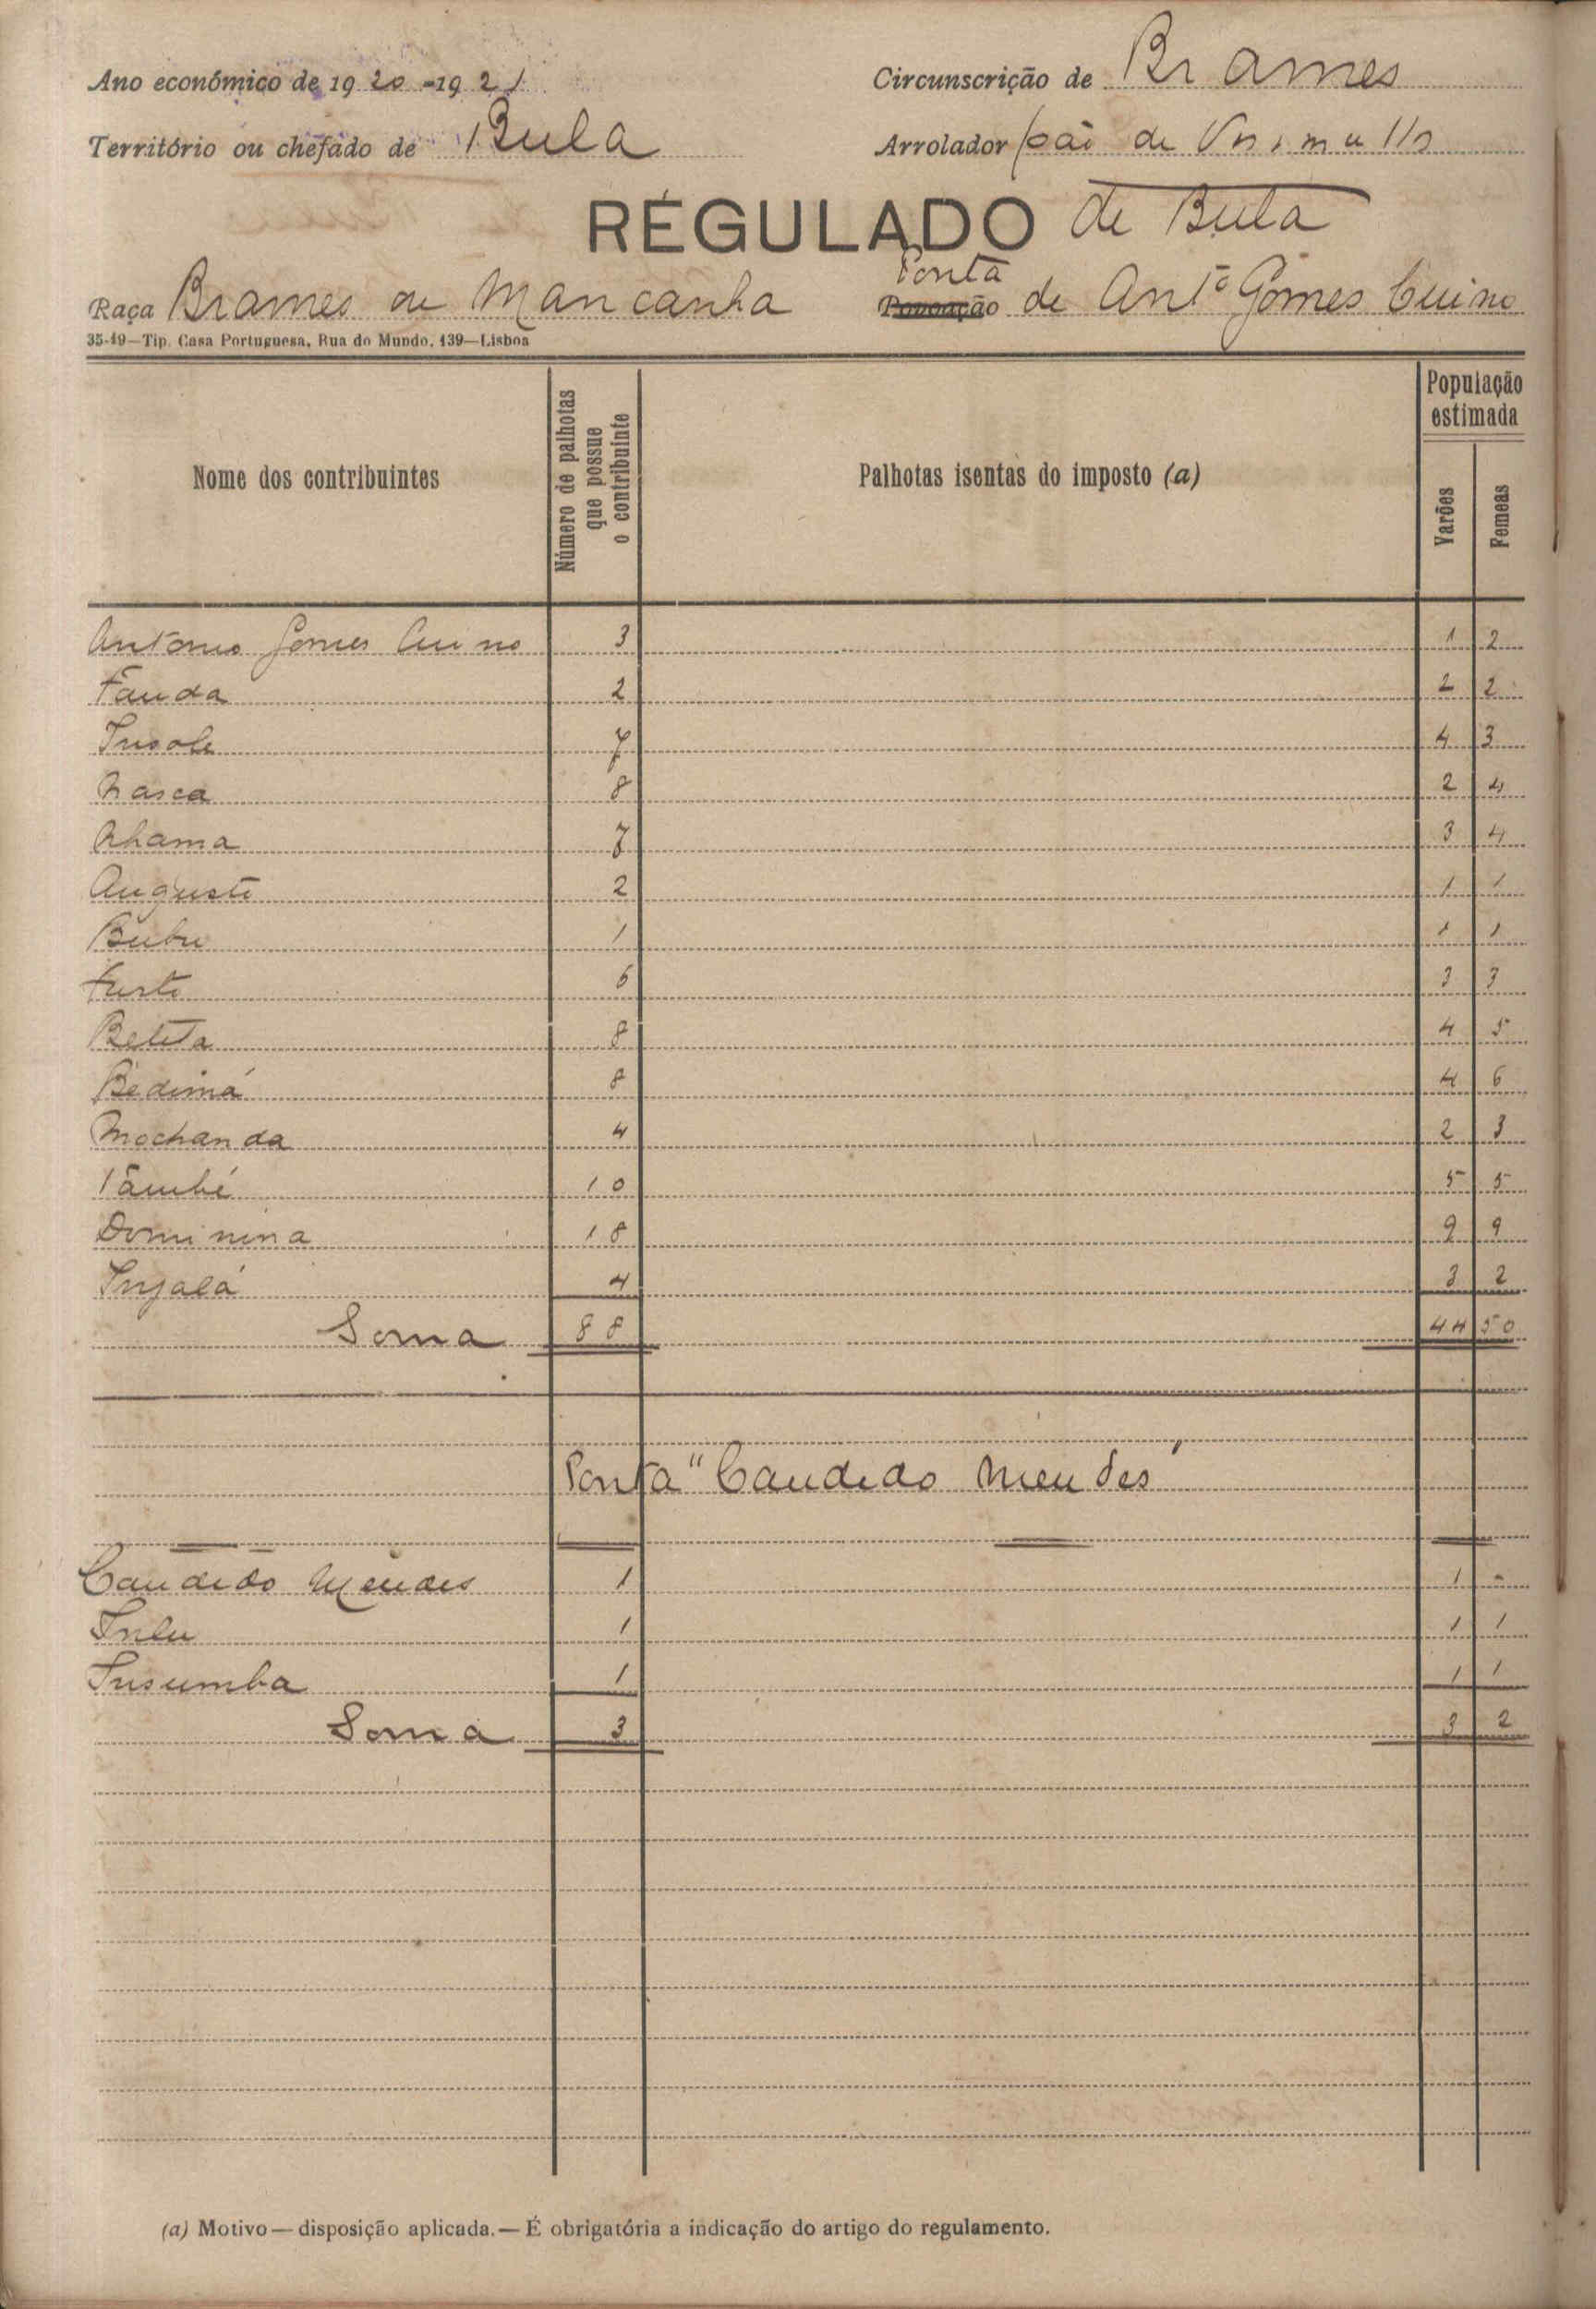 Ano económico de 1920-1921 Circunscrição de Brames
Território ou chefado de Bula Arrolador João de
RÉGULADO de Bula
Ponta
Raça Brames ou Mancanha Povoação de Antº Gomes Cuino
35-19—Tip. Casa Portuguesa, Rua do Mundo, 139—Lisboa
Nome dos contribuintes
Número de palhotas que possue o contribuinte
Palhotas isentas do imposto (a)
População estimada
Varões
Femeas
Antonio Gomes Cuino 3 1 2
Fauda 2 2 2
Insole 7 4 3
Nasca 8 2 4
Nhama 7 3 4
Augusto 2 1 1
Bubu 1 1 1
Furto 6 3 3
Beteta 8 4 5
Bedimá 8 4 6
Mochanda 4 2 3
Também 10 5 5
Dominina 18 9 9
Ingalá 4 3 2
Soma 88 44 50
Ponta "Candido Mendes"
Candido Mendes 1 1 -
Inlu 1 1 1
Insumba 1 1 1
Soma 3 3 2
(a) Motivo — disposição aplicada. — É obrigatória a indicação do artigo do regulamento.